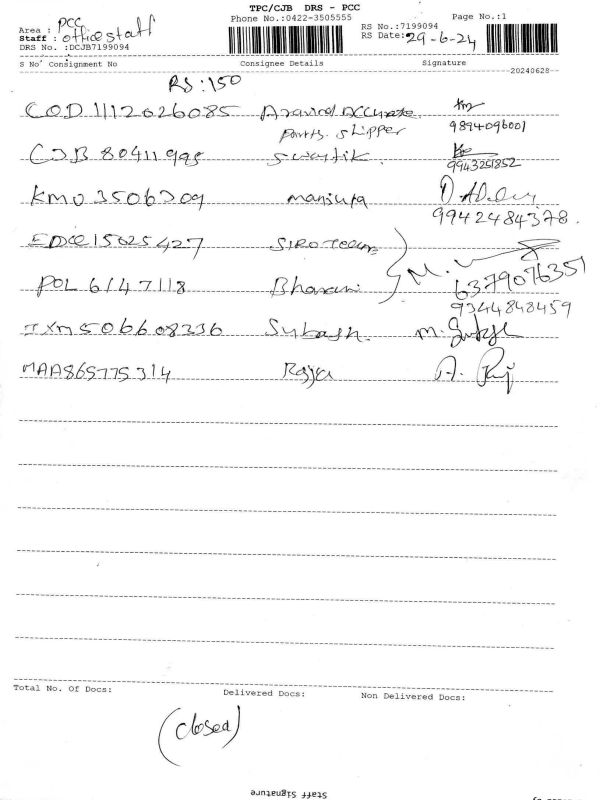 TPC/CJB DRS - PCC
Phone No.:0422-3505555 Page No.:1
Area : PCC RS No.:7199094
Staff : office staff RS Date: 29-6-24
DRS No. :DCJB7199094
S No' Consignment No Consignee Details Signature
20240628
RS:150
COD 1112026085 Aravind Accurate
parts shipper 9894096001
CJB 80411995 Swastik. 9943251852
KMU 3506209 Manjula
9942484378.
15025427
6379076351
POL 6147118 Bharani
9344848459
506608336 Subash. M.
MAA865775314 Raja A. Raj
Total No. Of Docs: Delivered Docs: Non Delivered Docs:
(closed)
Staff Signature